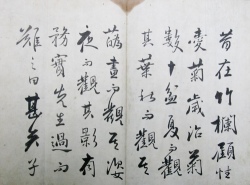 昔在竹欄顧性
愛菊歲治菊
數十盆夏而觀
其葉秋而觀其
蘤晝而觀其姿
夜而觀其影有
務實先生過而
難之曰甚矣子